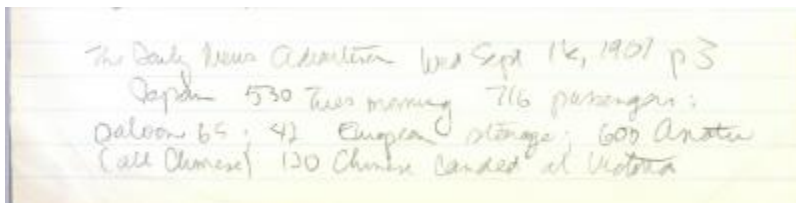 The Daily News Advertiser Wed Sept 18, 1907 p 3
Japan 530 Tues morning 716 passengers:
Saloon 65; 42 European steerage; 609 Asiatic
(all Chinese) 130 Chinese landed at Victoria